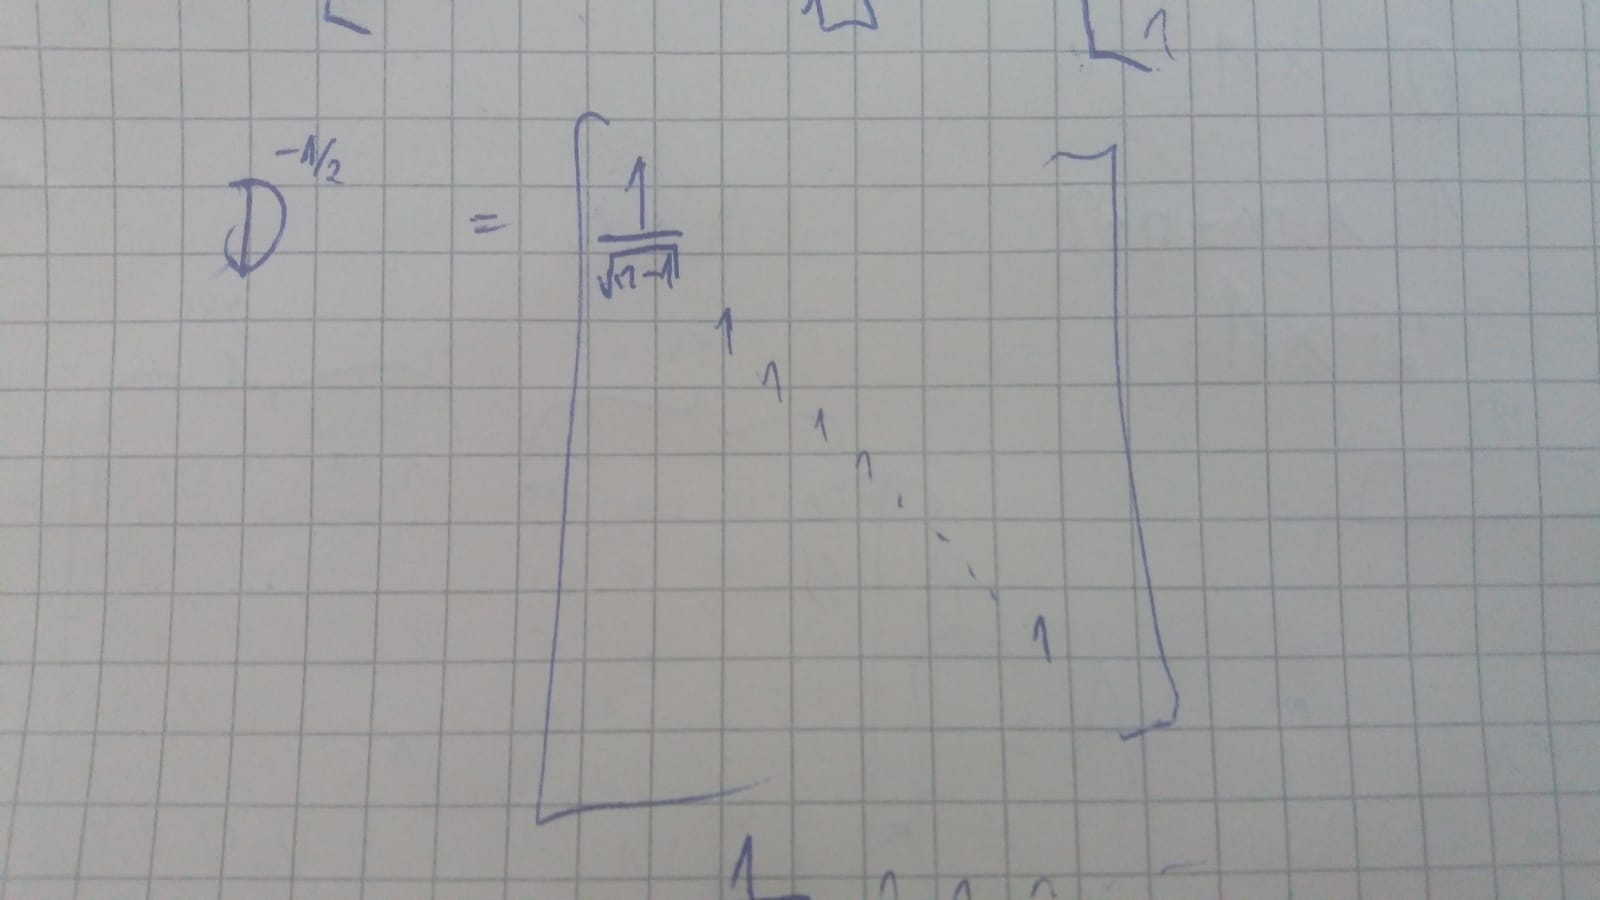 1
D^{-1/2} = [ 1/√(n-1)
1
1
1
1
. . . .
1 ]
1